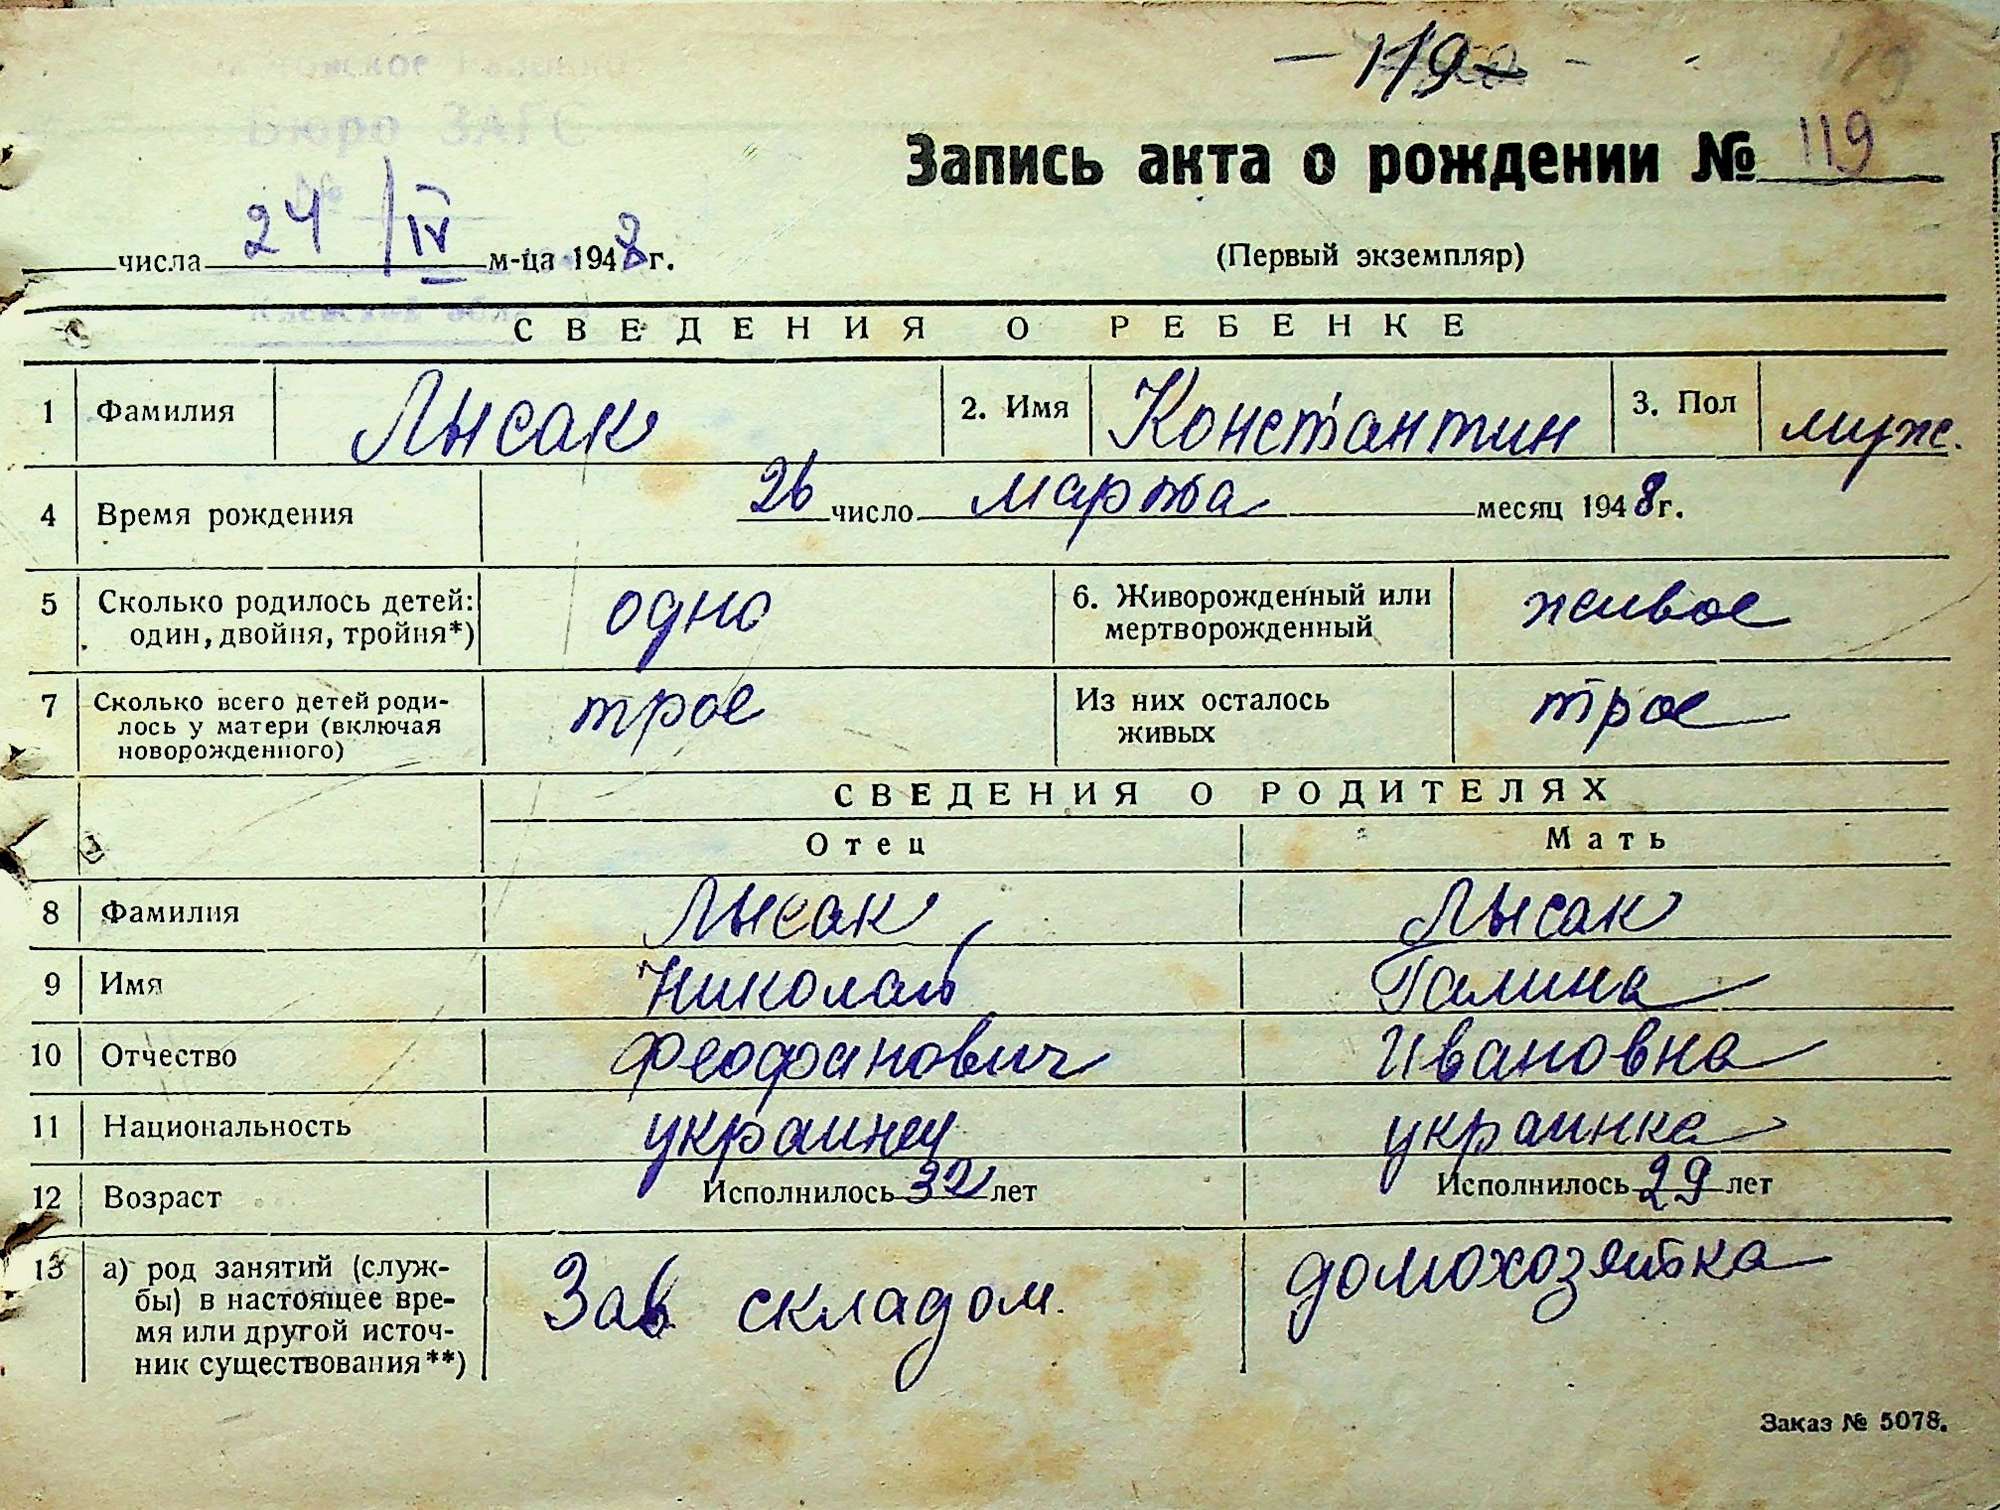 - 119 -
119
Бюро ЗАГС
№
Запись акта о рождении № 119
числа 24/IV м-ца 1948 г.
(Первый экземпляр)
СВЕДЕНИЯ О РЕБЕНКЕ
1 Фамилия Лысак 2. Имя Константин 3. Пол муж.
4 Время рождения 26 число марта месяц 1948 г.
5 Сколько родилось детей: один, двойня, тройня*) одно 6. Живорожденный или мертворожденный живое
7 Сколько всего детей роди-
лось у матери (включая
новорожденного) трое Из них осталось живых трое
СВЕДЕНИЯ О РОДИТЕЛЯХ
Отец Мать
8 Фамилия Лысак Лысак
9 Имя Николай Галина
10 Отчество Феофанович Ивановна
11 Национальность украинец украинка
12 Возраст Исполнилось 32 лет Исполнилось 29 лет
13 а) род занятий (служ-
бы) в настоящее вре-
мя или другой источ-
ник существования**) Зав складом. домохозяйка
Заказ № 5078.